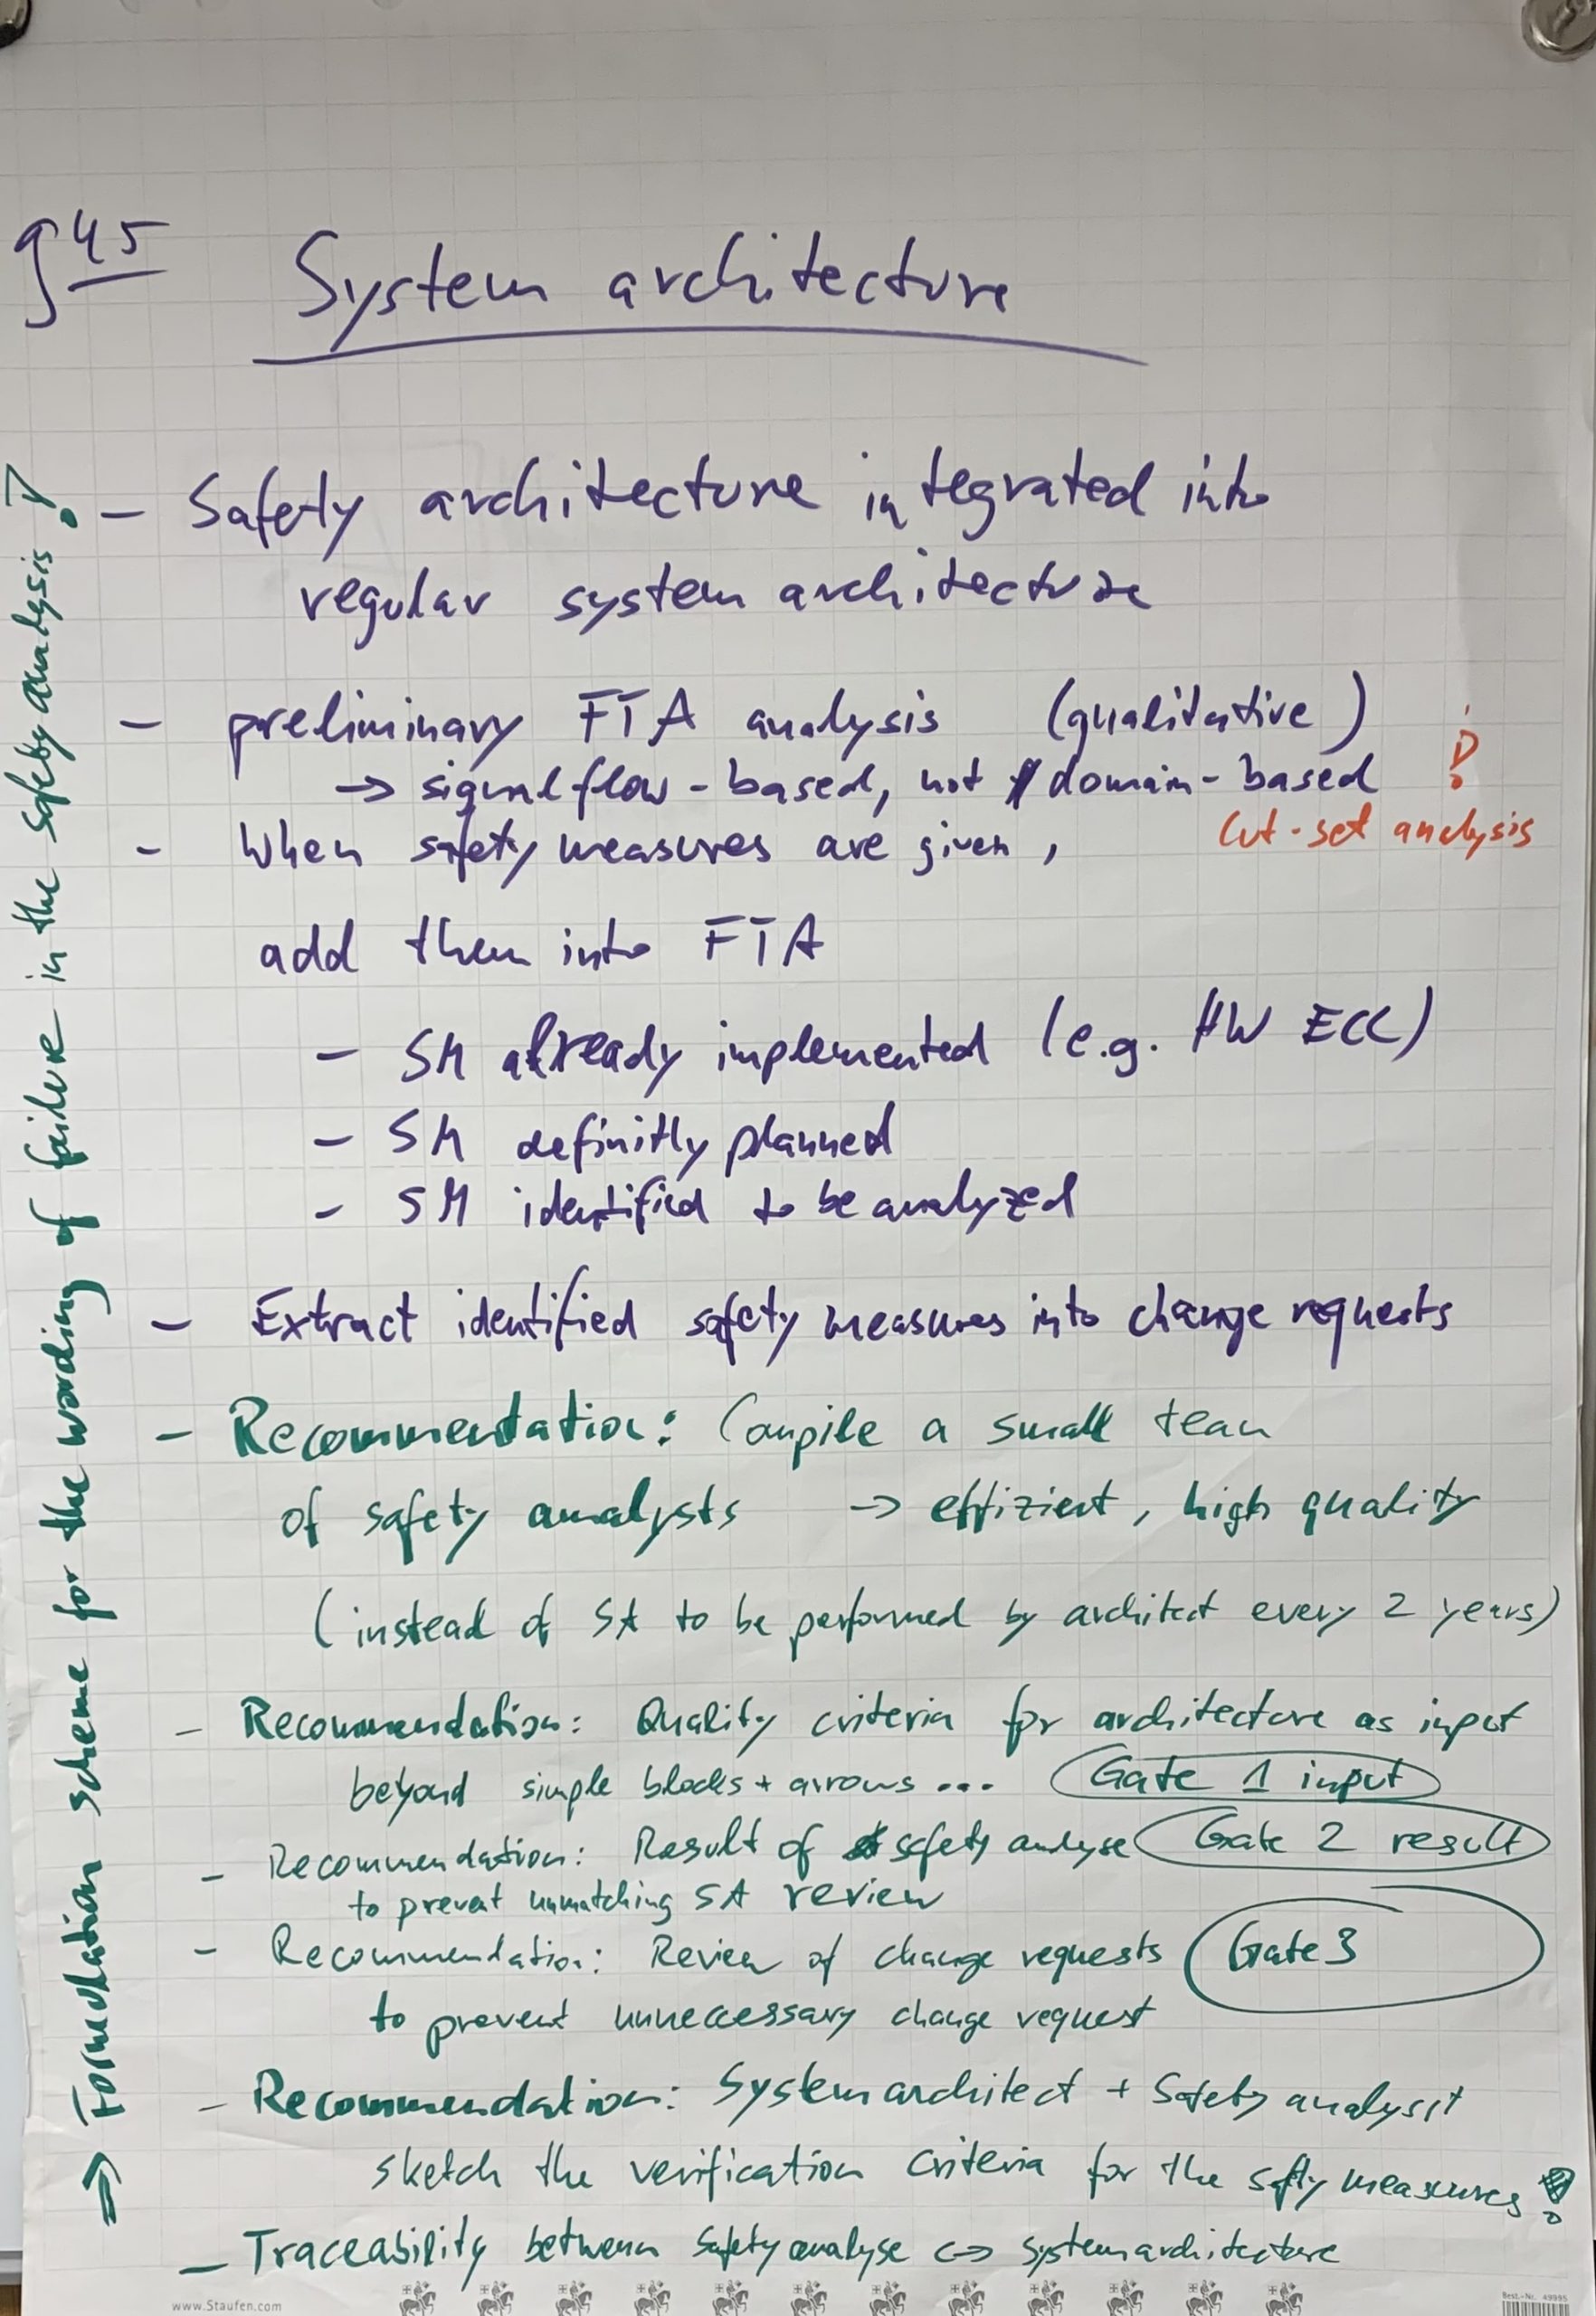 g45
System architecture
- Safety architecture integrated into
regular system architecture
- preliminary FTA analysis (qualitative) !
→ signalflow-based, not domain-based
cut-set analysis
- When safety measures are given,
add them into FTA
- SM already implemented (e.g. HW ECC)
- SM definitly planned
- SM identified to be analyzed
- Extract identified safety measures into change requests
- Recommendation: Compile a small team
of safety analysts → effizient, high quality
(instead of SA to be performed by architect every 2 years)
- Recommendation: Quality criteria for architecture as input
beyond simple blocks + arrows ... Gate 1 input
- Recommendation: Result of safety analyse Gate 2 result
to prevent unmatching SA review
- Recommendation: Review of change requests Gate 3
to prevent unnecessary change request
- Recommendation: System architect + Safety analysist
sketch the verification criteria for the safty measures!
- Traceability between safety analyse <-> systemarchitecture
⇒ Formulation scheme for the wording of failure in the safety analysis!
www.Staufen.com
Best.-Nr. 49995